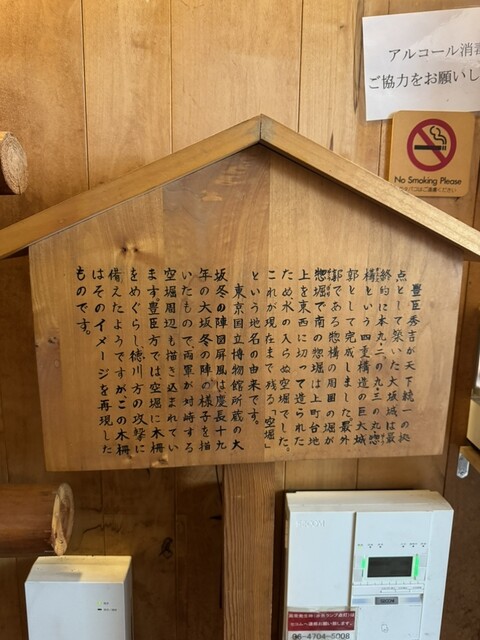 豊臣秀吉が天下統一の拠
点として築いた大坂城は最
終的に本丸・二の丸・三の丸・惣
構という四重構造の巨大城
郭として完成しました。最外
郭である惣構の周囲の堀が
惣堀で南の惣堀は上町台地
上を東西に切って造られた
ため、水の入らぬ空堀でした。
これが現在まで残る「空堀」
という地名の由来です。
東京国立博物館所蔵の大
坂冬の陣図屏風は慶長十九
年の大坂冬の陣の様子を描
いたもので、両軍が対峙する
空堀周辺も描き込まれてい
ます。豊臣方では空堀に木柵
をめぐらし、徳川方の攻撃に
備えたようですが、この木柵
はそのイメージを再現した
ものです。
アルコール消毒
ご協力をお願いし
No Smoking Please
06-4704-5008